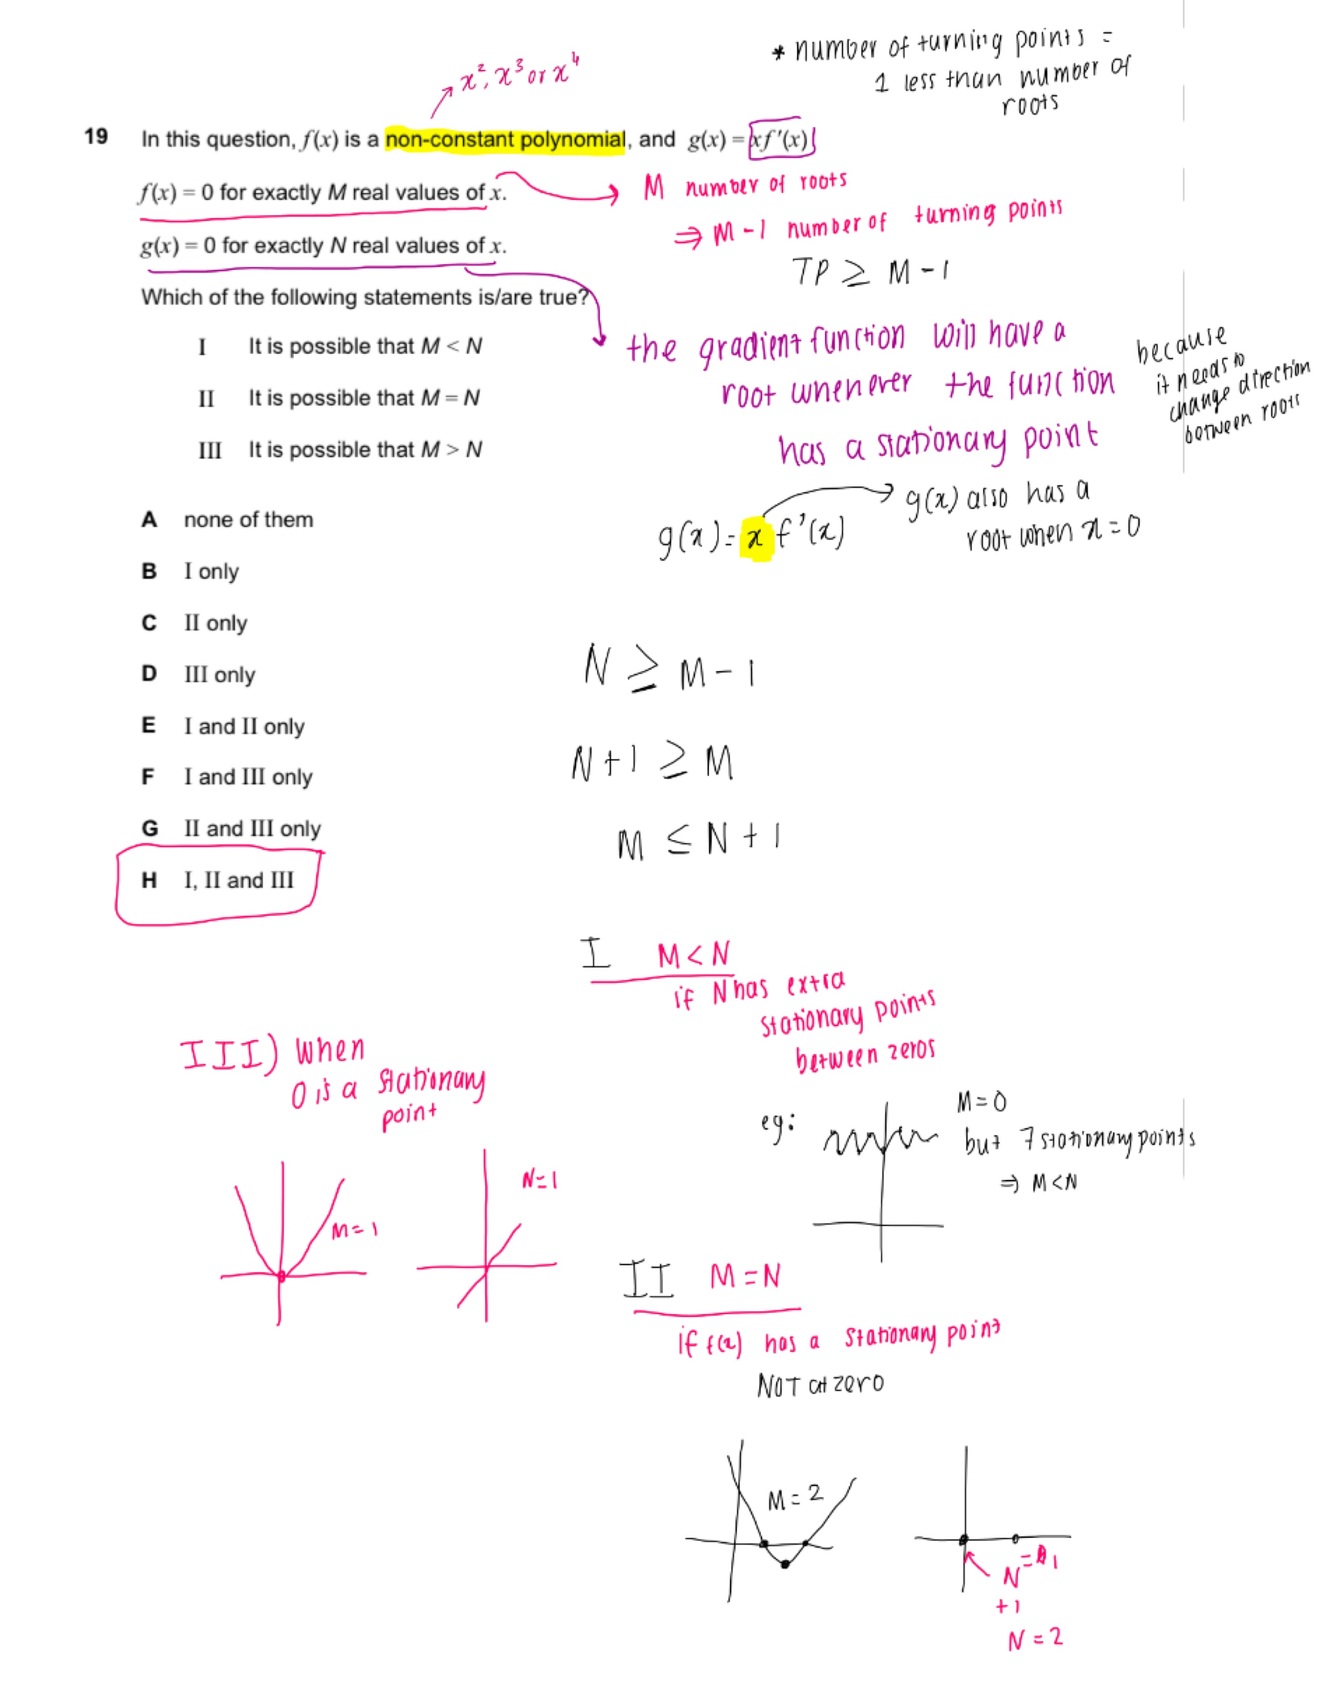 * number of turning points =
1 less than number of
roots
x², x³ or x⁴
19 In this question, f(x) is a non-constant polynomial, and g(x) = xf′(x)
f(x) = 0 for exactly M real values of x.
M number of roots
⇒ M - 1 number of turning points
g(x) = 0 for exactly N real values of x.
TP ≥ M - 1
Which of the following statements is/are true?
the gradient function will have a
root whenever the function
has a stationary point
because
it needs to
change direction
between roots
I It is possible that M < N
II It is possible that M = N
III It is possible that M > N
g(x) = x f'(x)
g(x) also has a
root when x = 0
A none of them
B I only
C II only
D III only
E I and II only
F I and III only
G II and III only
H I, II and III
N ≥ M - 1
N + 1 ≥ M
M ≤ N + 1
I M < N
if N has extra
stationary points
between zeros
eg:
M = 0
but 7 stationary points
⇒ M < N
III) when
0 is a stationary
point
M = 1
N = 1
II M = N
if f(x) has a stationary point
NOT at zero
M = 2
N = 1
+1
N = 2